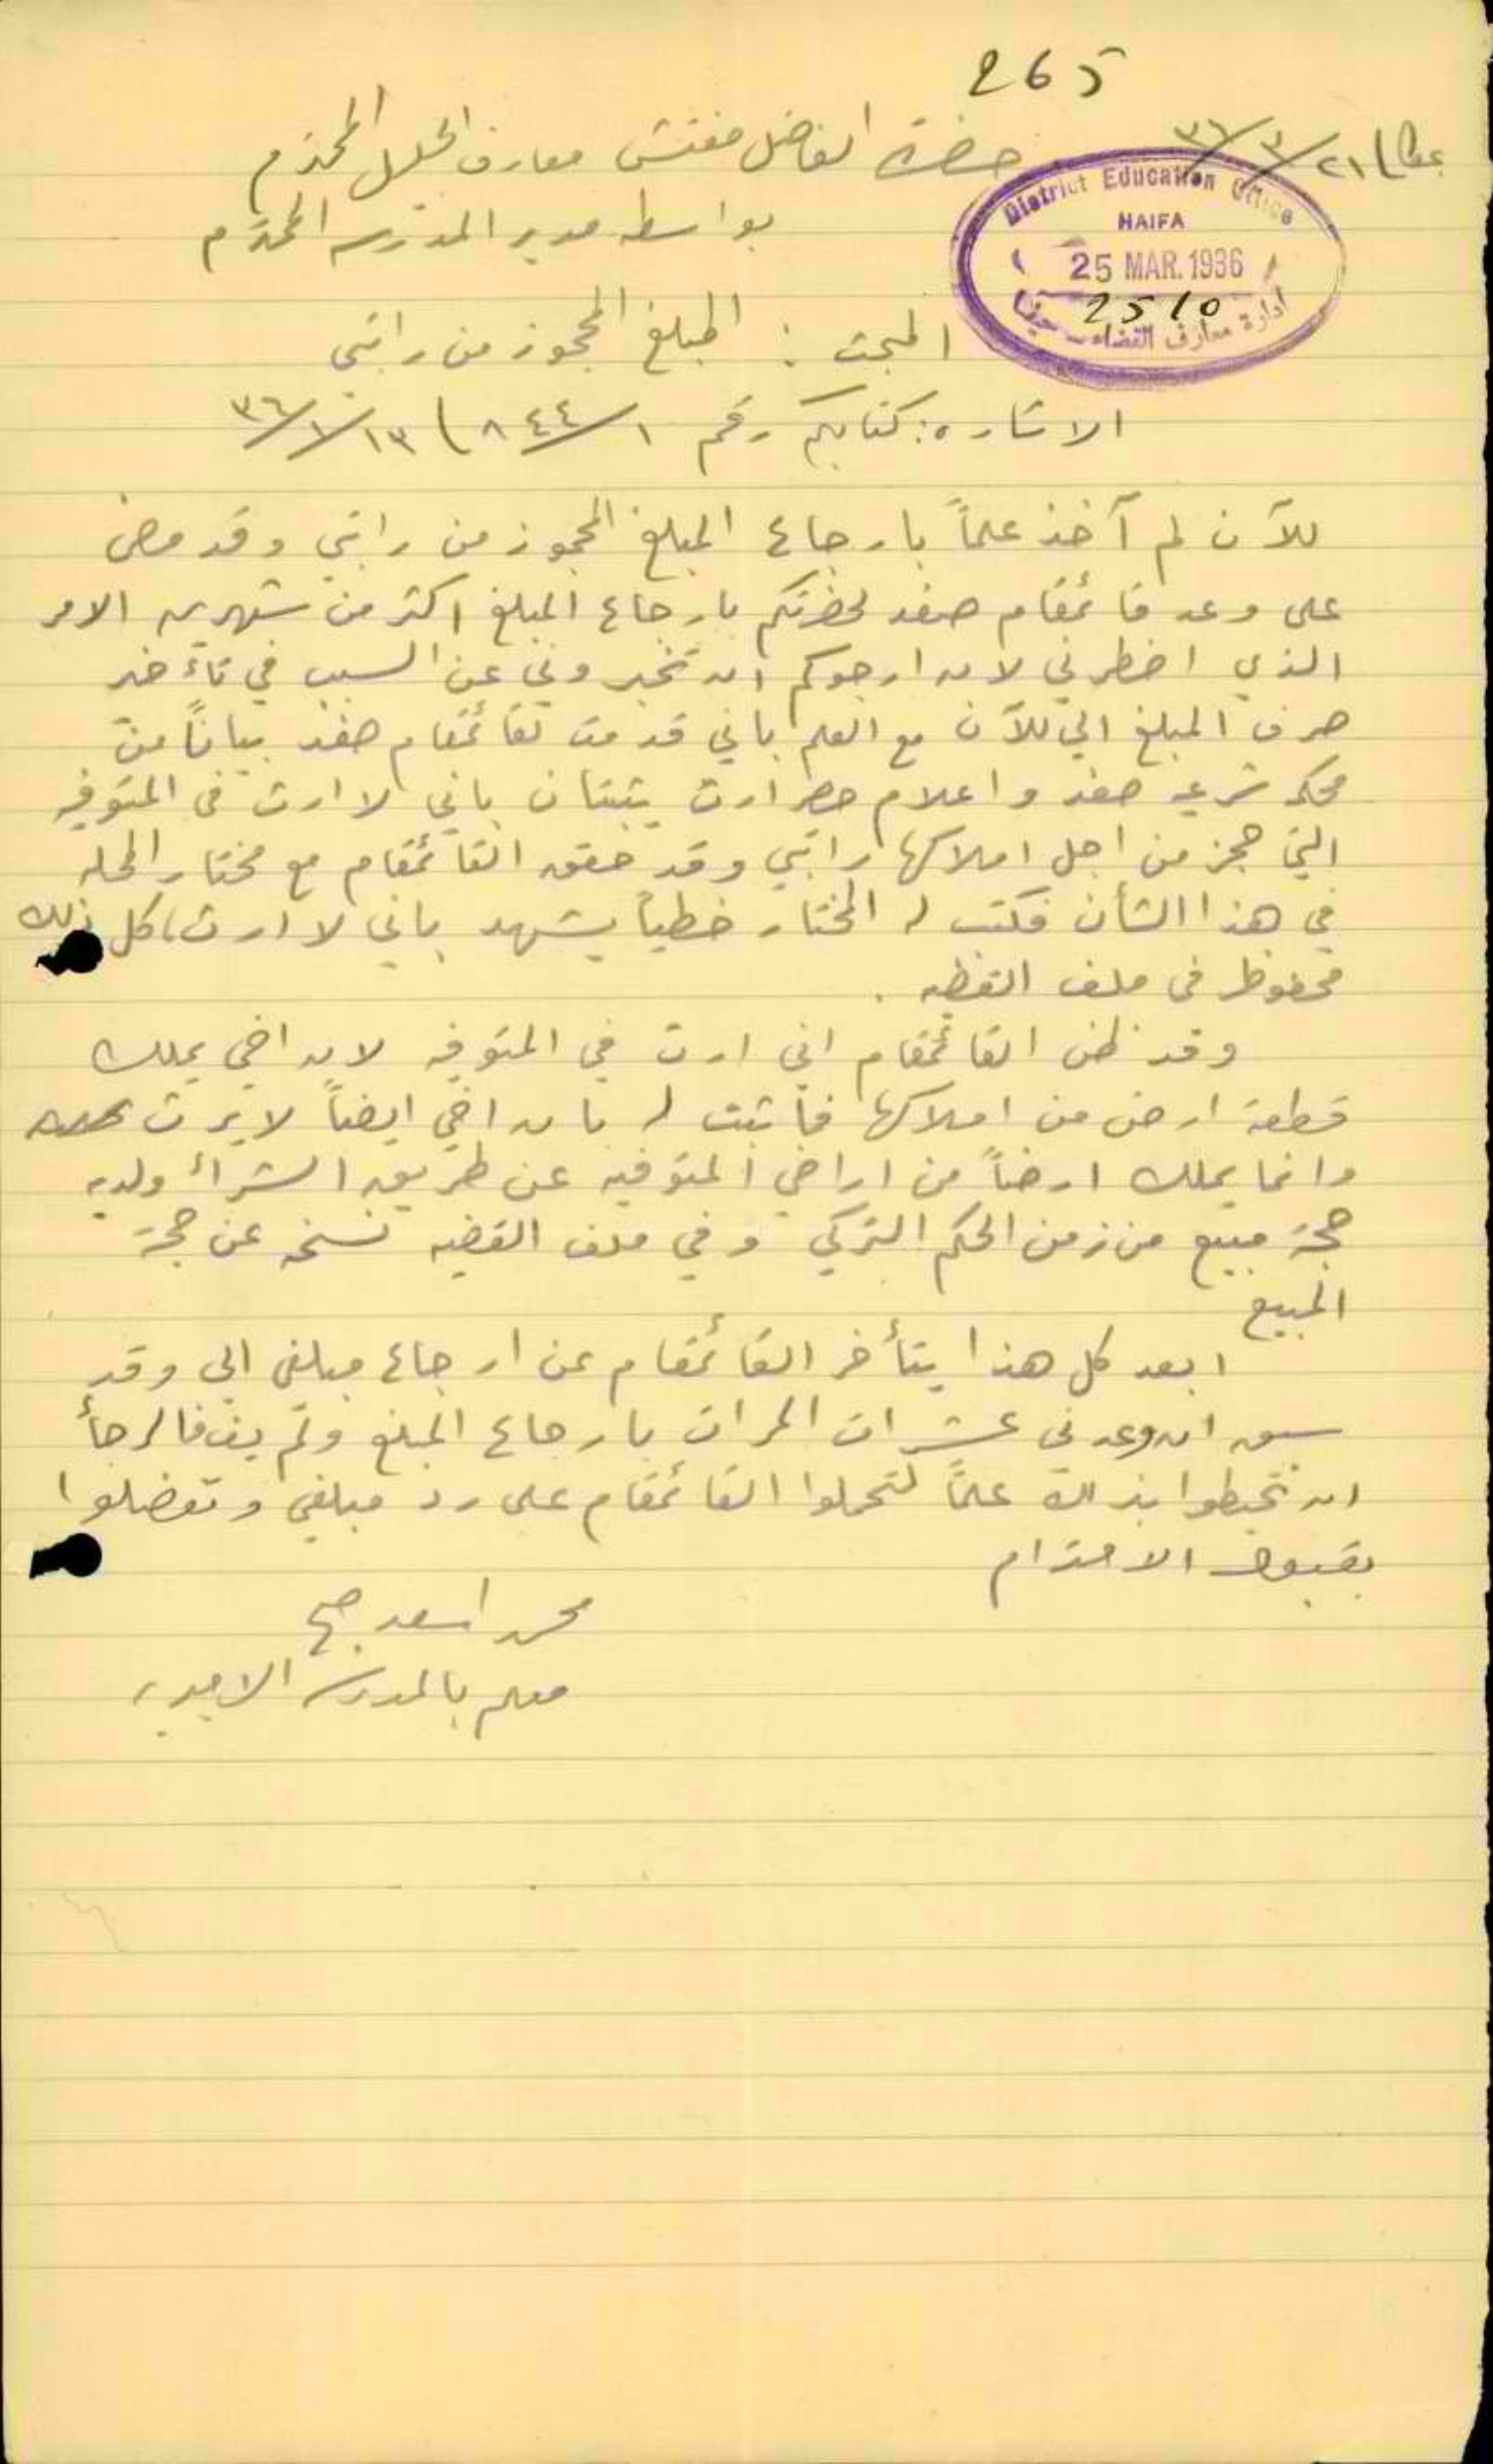 265
عكا ٢١/٣/٣٦
حضرة الفاضل مفتش معارف الجليل المحترم
بواسطه مدير المدرسه المحترم
District Education Office
HAIFA
25 MAR. 1936
2510
ادارة معارف القضاء - حيفا
المبحث : المبلغ المحجوز من راتبي
الاشاره : كتابكم رقم ١/٨٤٤ ١٣/١/٣٦
للآن لم آخذ علماً بارجاع المبلغ المحجوز من راتبي وقد مضى
على وعد قائمقام صفد لحضرتكم بارجاع المبلغ اكثر من شهرين الامر
الذي اضطرني لان ارجوكم ان تخبروني عن السبب في تاءخير
صرف المبلغ الي للآن مع العلم باني قدمت لقائمقام صفد بياناً من
محكمه شرعيه صفد واعلام حصر ارث يثبتان باني لا ارث في المتوفيه
التي حجز من اجل املاكها راتبي وقد حقق القائمقام مع مختار المحله
في هذا الشأن فكتب له المختار خطياً يشهد باني لا ارث، كل ذلك
محفوظ في ملف القضيه .
وقد ظن القائمقام اني ارث في المتوفيه لان اخي يملك
قطعة ارض من املاكها فأثبت له بان اخي ايضاً لا يرث
وانما يملك ارضاً من اراضي المتوفيه عن طريق الشراء ولديه
حجة مبيع من زمن الحكم التركي وفي ملف القضيه نسخه عن حجة
المبيع
ابعد كل هذا يتأخر القائمقام عن ارجاع مبلغي الي وقد
سبق ان وعدني عشرات المرات بارجاع المبلغ ولم يف فالرجأ
ان تحيطوا بذلك علماً لتحملوا القائمقام على رد مبلغي وتفضلوا
بقبول الاحترام
محمد اسعد صبح
معلم بالمدرسه الاميريه